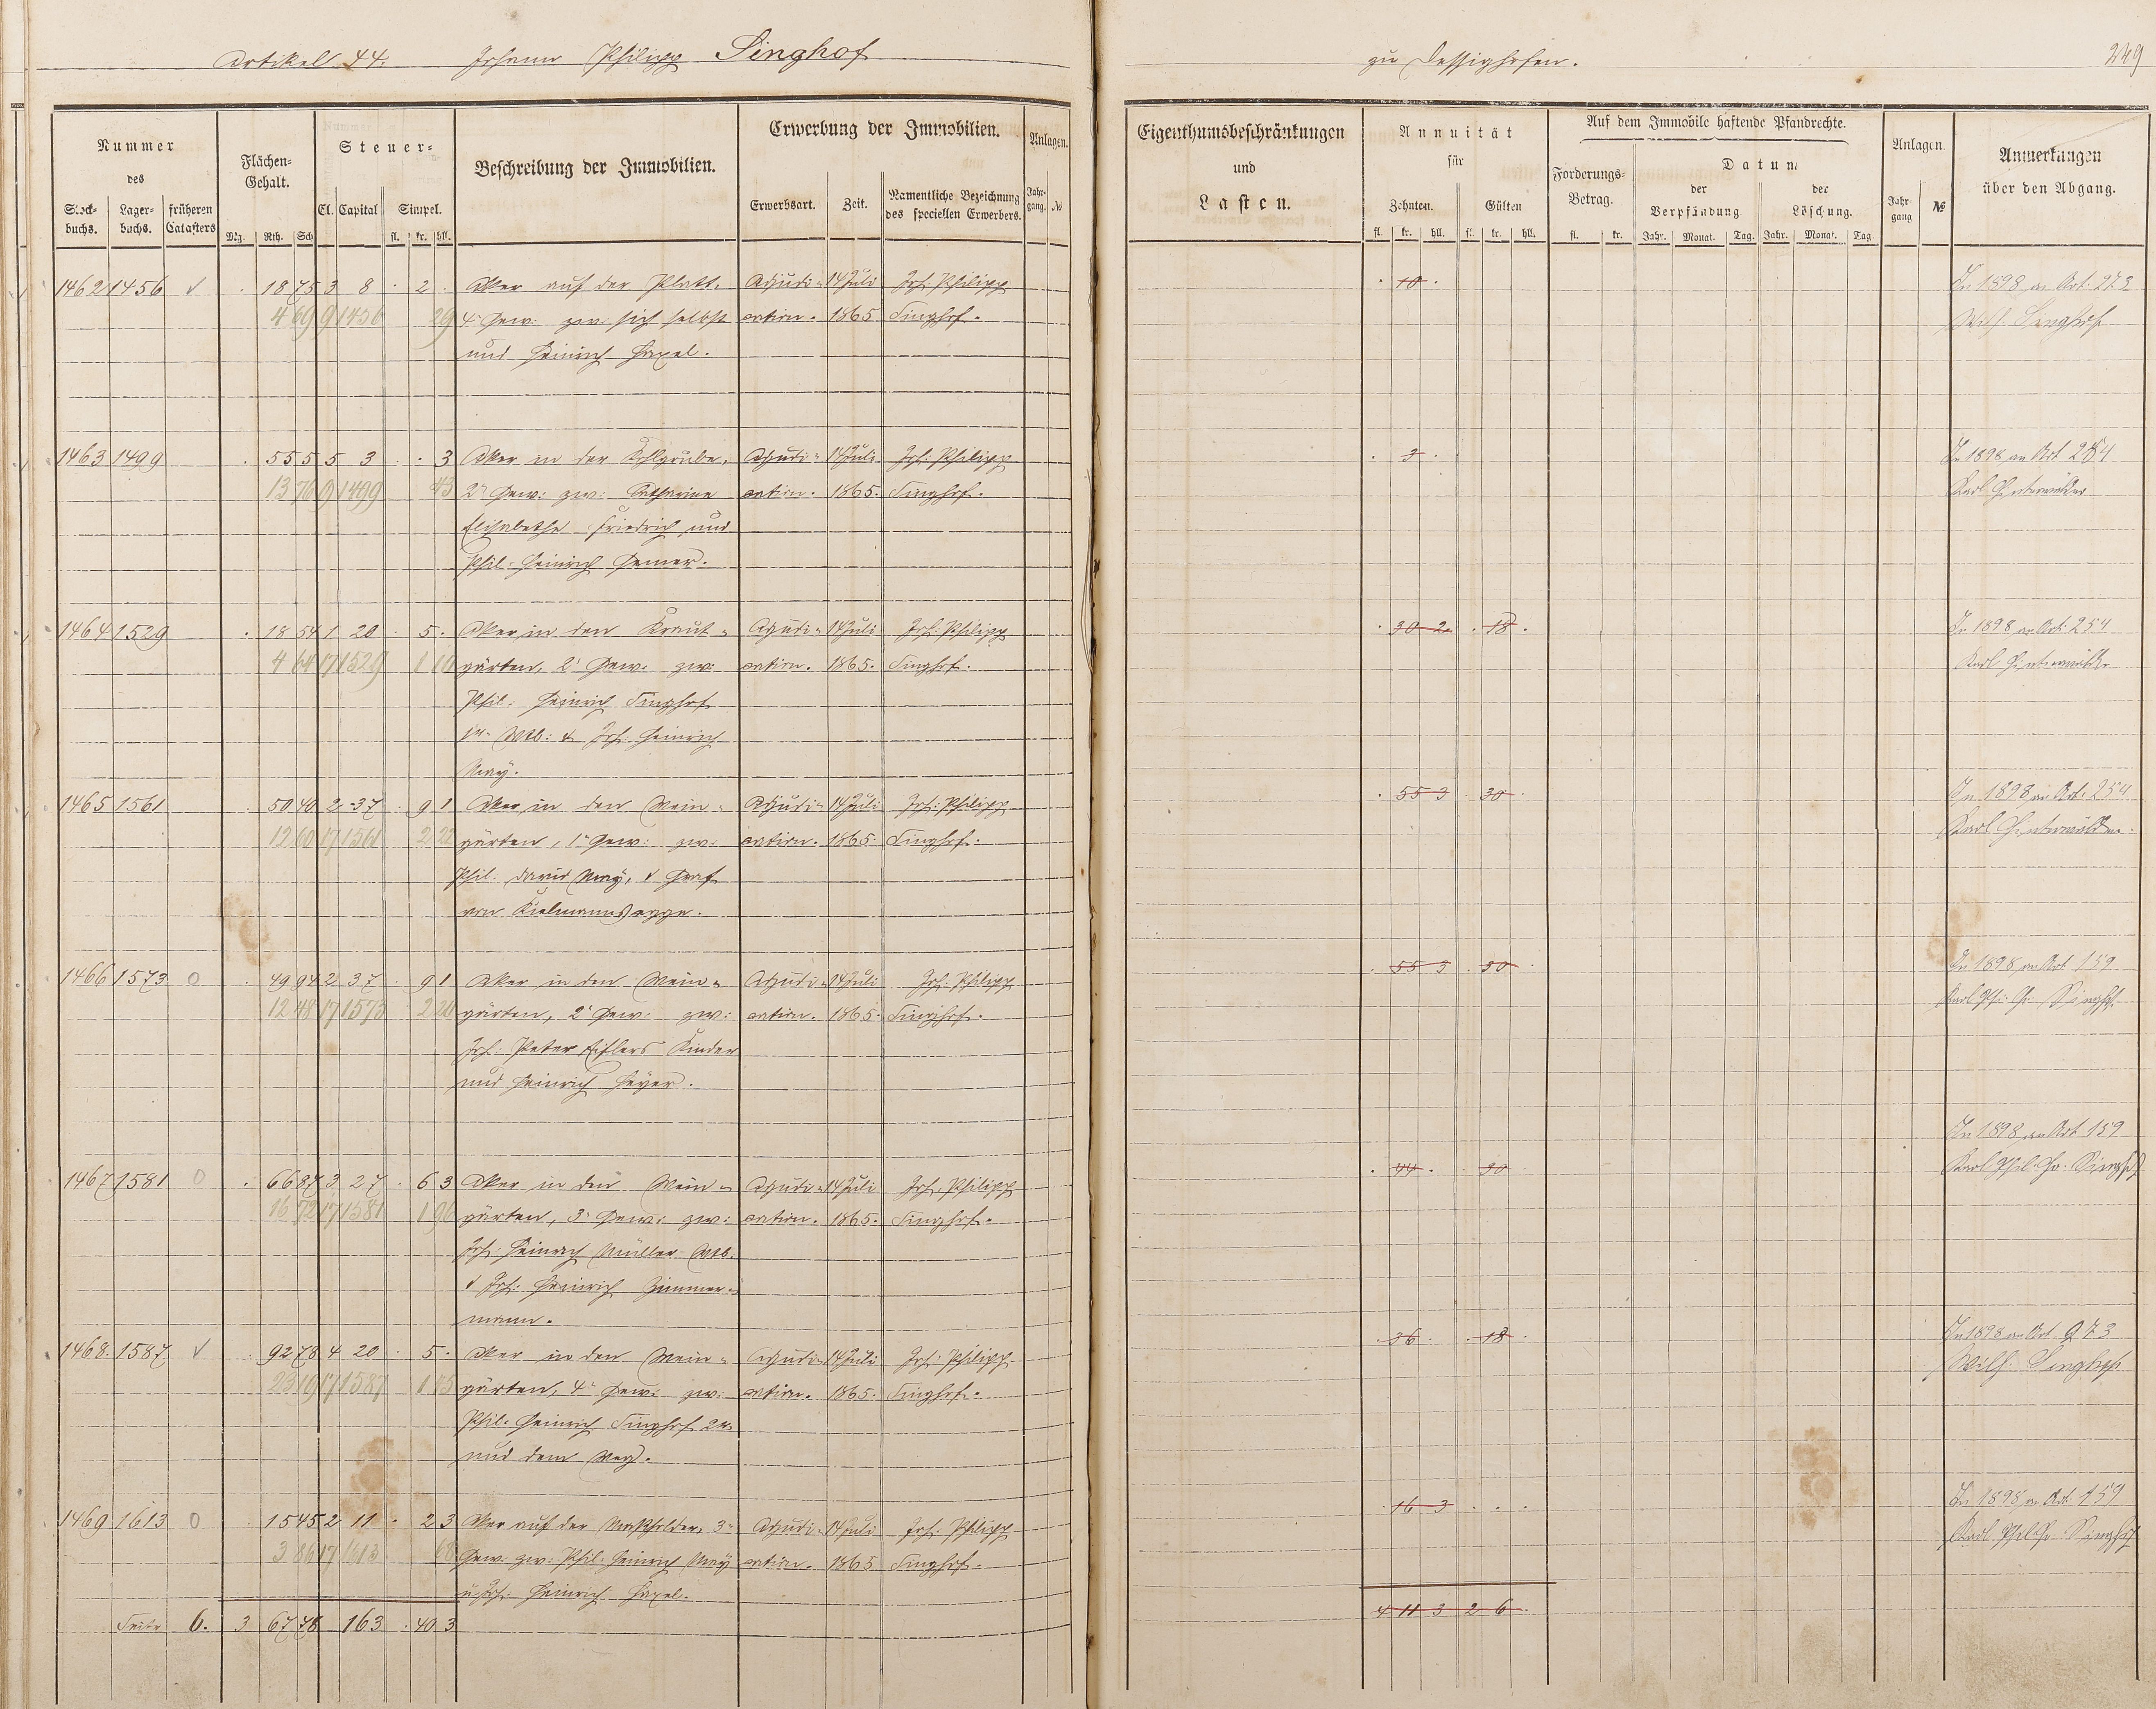 Artikel 44. Johann Philipp Singhof
zu Dessighofen. 249
Nummer des
Stock-buchs. Lager-buchs. früheren Catasters
Flächen-Gehalt.
Mg. Rth. Sch
Steuer-
Cl. Capital Simpel.
fl. kr. hll.
Beschreibung der Immobilien.
Erwerbung der Immobilien.
Erwerbsart. Zeit. Namentliche Bezeichnung des speciellen Erwerbers.
Anlagen.
Jahr-gang. №
Eigenthumsbeschränkungen und Lasten.
Annuität für
Zehnten. Gülten
fl. kr. hll. fl. kr. hll.
Auf dem Immobile haftende Pfandrechte.
Forderungs-Betrag.
fl. kr.
Datum
der Verpfändung der Löschung.
Jahr. Monat. Tag. Jahr. Monat. Tag.
Anlagen.
Jahrgang №
Anmerkungen über den Abgang.
1462 1456 √ . 18 75 3 8 . 2 . Aker auf der Platt, Adjudi- 14 Juli Joh. Philipp . 10 . In 1898 an Art. 273
4 69 9 1456 29 4r Gew. zw. sich selbst cation. 1865 Singhof. Wilh. Singhof
und Heinrich Hapel.
1463 1499 . 55 5 5 3 . . 3 Aker in der Kohlgrube, Adjudi- 14 Juli Joh. Philipp . 3 . In 1898 an Art 254
13 76 9 1499 43 2r Gew: zw: Catharine cation. 1865. Singhof. Karl Hinterwälder
Elisabetha Friedrich und
Phil. Heinrich Hemer.
1464 1529 . 18 54 1 20 . 5 . Aker in den Kraut- Adjudi- 14 Juli Joh: Philipp . 30 2 . 18 . In 1898 an Art. 254
4 64 17 1529 1 10 gärten, 2r Gew. zw: cation. 1865. Singhof. Karl Hinterwälder
Phil. Heinrich Singhof
Wtb: & Joh. Heinrich
May.
1465 1561 . 50 40 2 37 . 9 1 Aker in den Wein- Adjudi- 14 Juli Joh: Philipp . 55 3 . 30 . In 1898 an Art. 254
12 60 17 1561 2 22 gärten, 1r Gew: zw: cation. 1865. Singhof. Karl Hinterwälder.
Phil. David May, & Graf
von Kielmannsegge.
1466 1573 0 . 49 94 2 37 . 9 1 Aker in den Wein- Adjudi- 14 Juli Joh: Philipp . 55 3 . 30 . In 1898 an Art 159
12 48 17 1573 2 20 gärten, 2r Gew: zw: cation. 1865. Singhof. Karl Ph. H. Singhof
Joh: Peter Eislers Kinder
und Heinrich Heyer.
1467 1581 0 . 66 87 3 27 . 6 3 Aker in den Wein- Adjudi- 14 Juli Joh. Philipp . 44 . . 30 . In 1898 an Art 159
16 72 17 1581 1 96 gärten, 3r Gew: zw: cation. 1865. Singhof. Karl Phil. Hr. Singhof
Joh. Heinrich Müller Wtb.
& Joh: Heinrich Zimmer-
mann.
1468. 1587 √ . 92 78 4 20 . 5 . Aker in den Wein- Adjudi- 14 Juli Joh: Philipp . 36 . . 18 . In 1898 an Art 273
23 19 17 1587 1 45 gärten, 4r Gew: zw: cation. 1865. Singhof. Wilh. Singhof
Phil. Heinrich Singhof 2r.
und dem Weg.
1469 1613 0 . 15 45 2 11 . 2 3 Aker auf der Maßholder, 3r Adjudi- 14 Juli Joh. Philipp . 16 3 . . . In 1898 an Art. 159
3 86 17 1613 68 Gew. zw: Phil. Heinrich May cation. 1865 Singhof. Karl Phil. Hr. Singhof
u. Joh: Heinrich Hapel.
Seite 6. 3 67 78 163 . 40 3 4 11 3 2 6 .